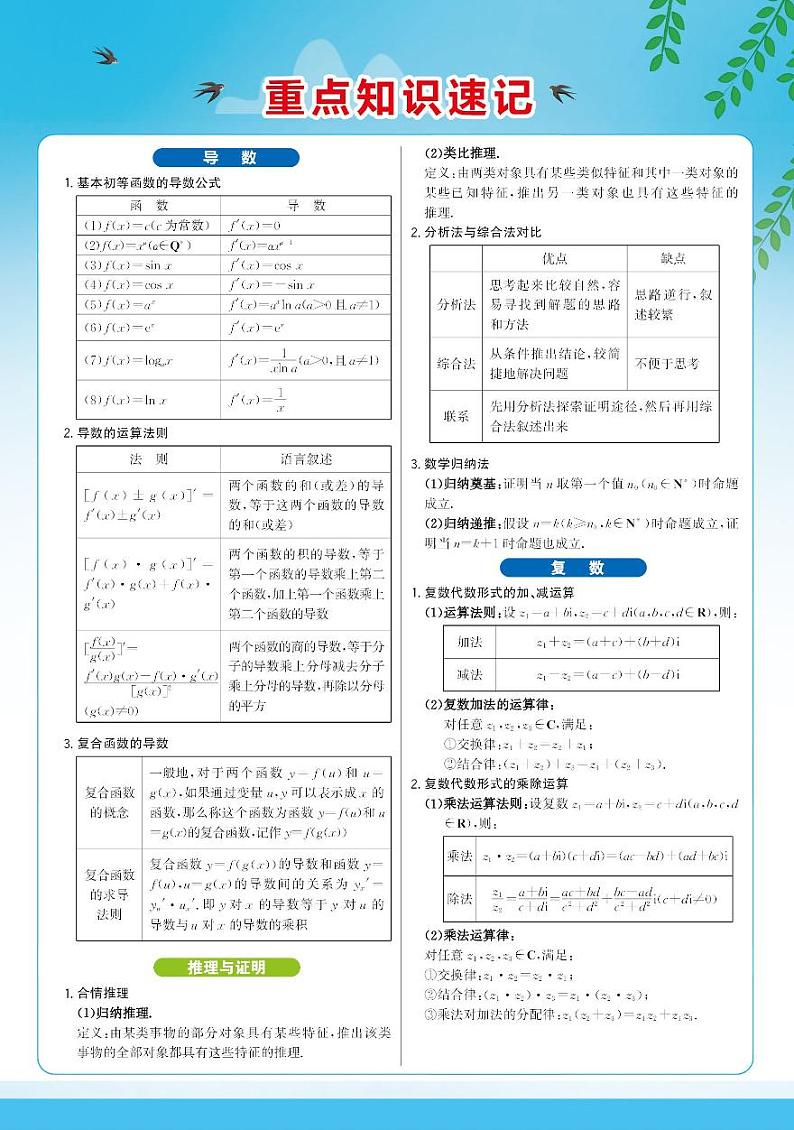 重点知识速记
导 数
1. 基本初等函数的导数公式
函 数 导 数
(1) f(x)=c(c为常数) f′(x)=0
(2) f(x)=xᵅ(α∈Q*) f′(x)=αxᵅ⁻¹
(3) f(x)=sin x f′(x)=cos x
(4) f(x)=cos x f′(x)=-sin x
(5) f(x)=aˣ f′(x)=aˣln a(a>0且a≠1)
(6) f(x)=eˣ f′(x)=eˣ
(7) f(x)=logₐx f′(x)=1/(xln a)(a>0,且a≠1)
(8) f(x)=ln x f′(x)=1/x
2. 导数的运算法则
法 则 语言叙述
[f(x)±g(x)]′=
f′(x)±g′(x)
两个函数的和(或差)的导
数,等于这两个函数的导数
的和(或差)
[f(x)·g(x)]′=
f′(x)·g(x)+f(x)·
g′(x)
两个函数的积的导数,等于
第一个函数的导数乘上第二
个函数,加上第一个函数乘上
第二个函数的导数
[f(x)/g(x)]′=
(f′(x)g(x)-f(x)·g′(x))/[g(x)]²
(g(x)≠0)
两个函数的商的导数,等于分
子的导数乘上分母减去分子
乘上分母的导数,再除以分母
的平方
3. 复合函数的导数
复合函数
的概念
一般地,对于两个函数 y=f(u)和 u=
g(x),如果通过变量 u,y 可以表示成 x 的
函数,那么称这个函数为函数 y=f(u)和 u
=g(x)的复合函数,记作 y=f(g(x))
复合函数
的求导
法则
复合函数 y=f(g(x))的导数和函数 y=
f(u),u=g(x)的导数间的关系为 yₓ′=
yᵤ′·uₓ′.即 y 对 x 的导数等于 y 对 u 的
导数与 u 对 x 的导数的乘积
推理与证明
1. 合情推理
(1)归纳推理.
定义:由某类事物的部分对象具有某些特征,推出该类
事物的全部对象都具有这些特征的推理.
(2)类比推理.
定义:由两类对象具有某些类似特征和其中一类对象的
某些已知特征,推出另一类对象也具有这些特征的
推理.
2. 分析法与综合法对比
优点 缺点
分析法
思考起来比较自然,容
易寻找到解题的思路
和方法
思路逆行,叙
述较繁
综合法
从条件推出结论,较简
捷地解决问题
不便于思考
联系
先用分析法探索证明途径,然后再用综
合法叙述出来
3. 数学归纳法
(1)归纳奠基:证明当 n 取第一个值 n₀(n₀∈N*)时命题
成立.
(2)归纳递推:假设 n=k(k≥n₀,k∈N*)时命题成立,证
明当 n=k+1 时命题也成立.
复 数
1. 复数代数形式的加、减运算
(1)运算法则:设 z₁=a+bi,z₂=c+di(a,b,c,d∈R),则:
加法 z₁+z₂=(a+c)+(b+d)i
减法 z₁-z₂=(a-c)+(b-d)i
(2)复数加法的运算律:
对任意 z₁,z₂,z₃∈C,满足:
①交换律:z₁+z₂=z₂+z₁;
②结合律:(z₁+z₂)+z₃=z₁+(z₂+z₃).
2. 复数代数形式的乘除运算
(1)乘法运算法则:设复数 z₁=a+bi,z₂=c+di(a,b,c,d
∈R),则:
乘法 z₁·z₂=(a+bi)(c+di)=(ac-bd)+(ad+bc)i
除法 z₁/z₂=(a+bi)/(c+di)=(ac+bd)/(c²+d²)+(bc-ad)/(c²+d²)i(c+di≠0)
(2)乘法运算律:
对任意 z₁,z₂,z₃∈C,满足:
①交换律:z₁·z₂=z₂·z₁;
②结合律:(z₁·z₂)·z₃=z₁·(z₂·z₃);
③乘法对加法的分配律:z₁(z₂+z₃)=z₁z₂+z₁z₃.